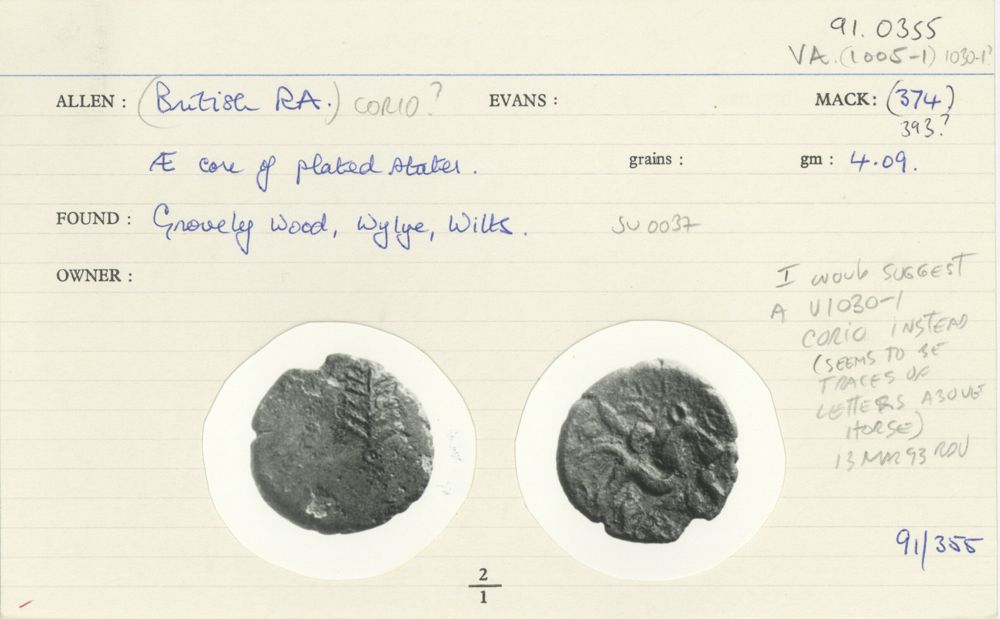 91.0355
VA. (1005-1) 1030-1?
ALLEN : (British RA.) CORIO? EVANS : MACK: (374)
393?
Æ core of plated stater. grains : gm : 4.09.
FOUND : Grovely Wood, Wylye, Wilts. SU 0037
OWNER :
I WOULD SUGGEST
A V1030-1
CORIO INSTEAD
(SEEMS TO BE
TRACES OF
LETTERS ABOVE
HORSE)
13 MAR 93 RDV
91/355
2
1